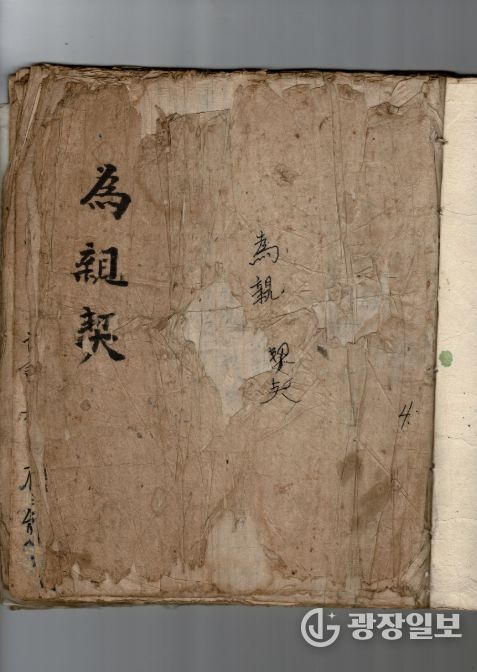 為親契
為親 契
4.
광장일보